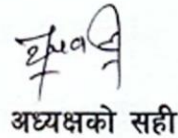 अध्यक्षको सही